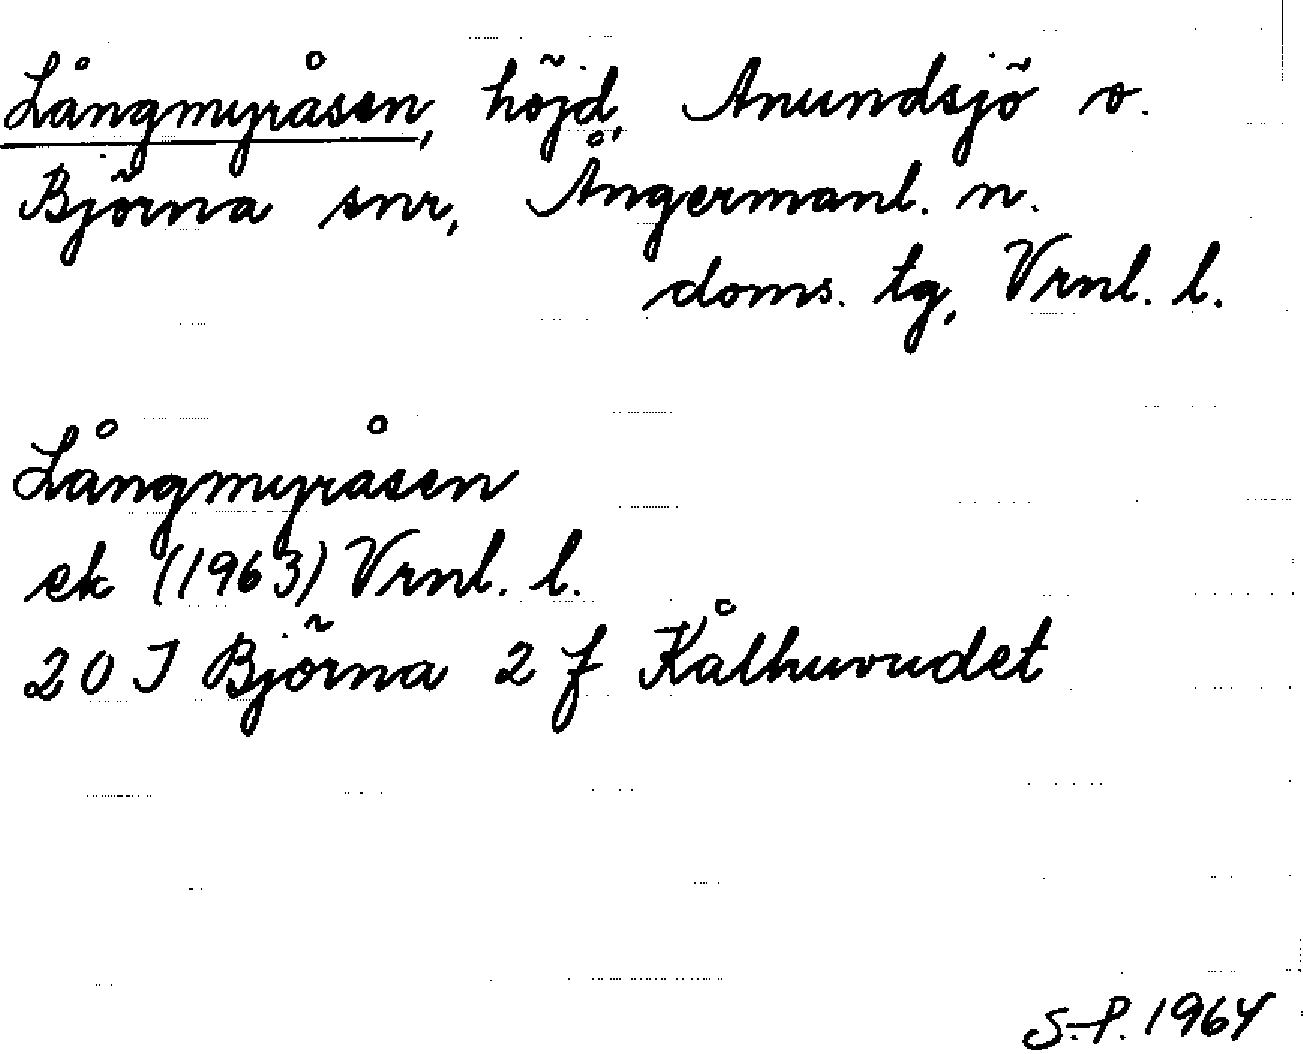 Långmyråsen, höjd, Anundsjö o.
Björna snr, Ångermanl. n.
doms. tg, Vrnl. l.
Långmyråsen
ek (1963) Vrnl. l.
20 J Björna 2 f Kålhuvudet
S.-P. 1964